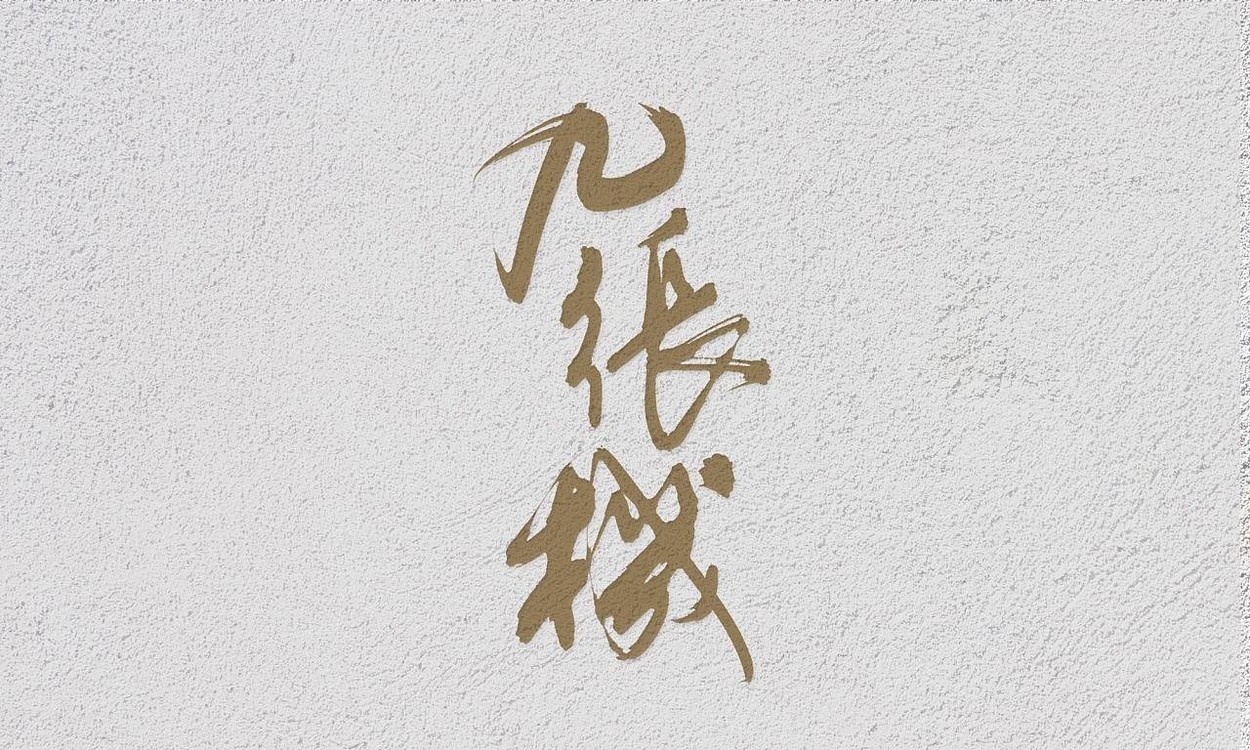 九張機